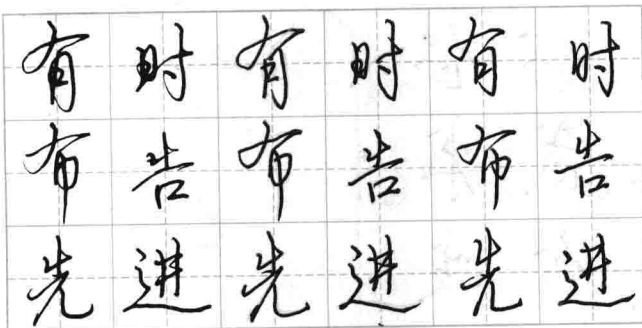 有时有时有时
布告布告布告
先进先进先进